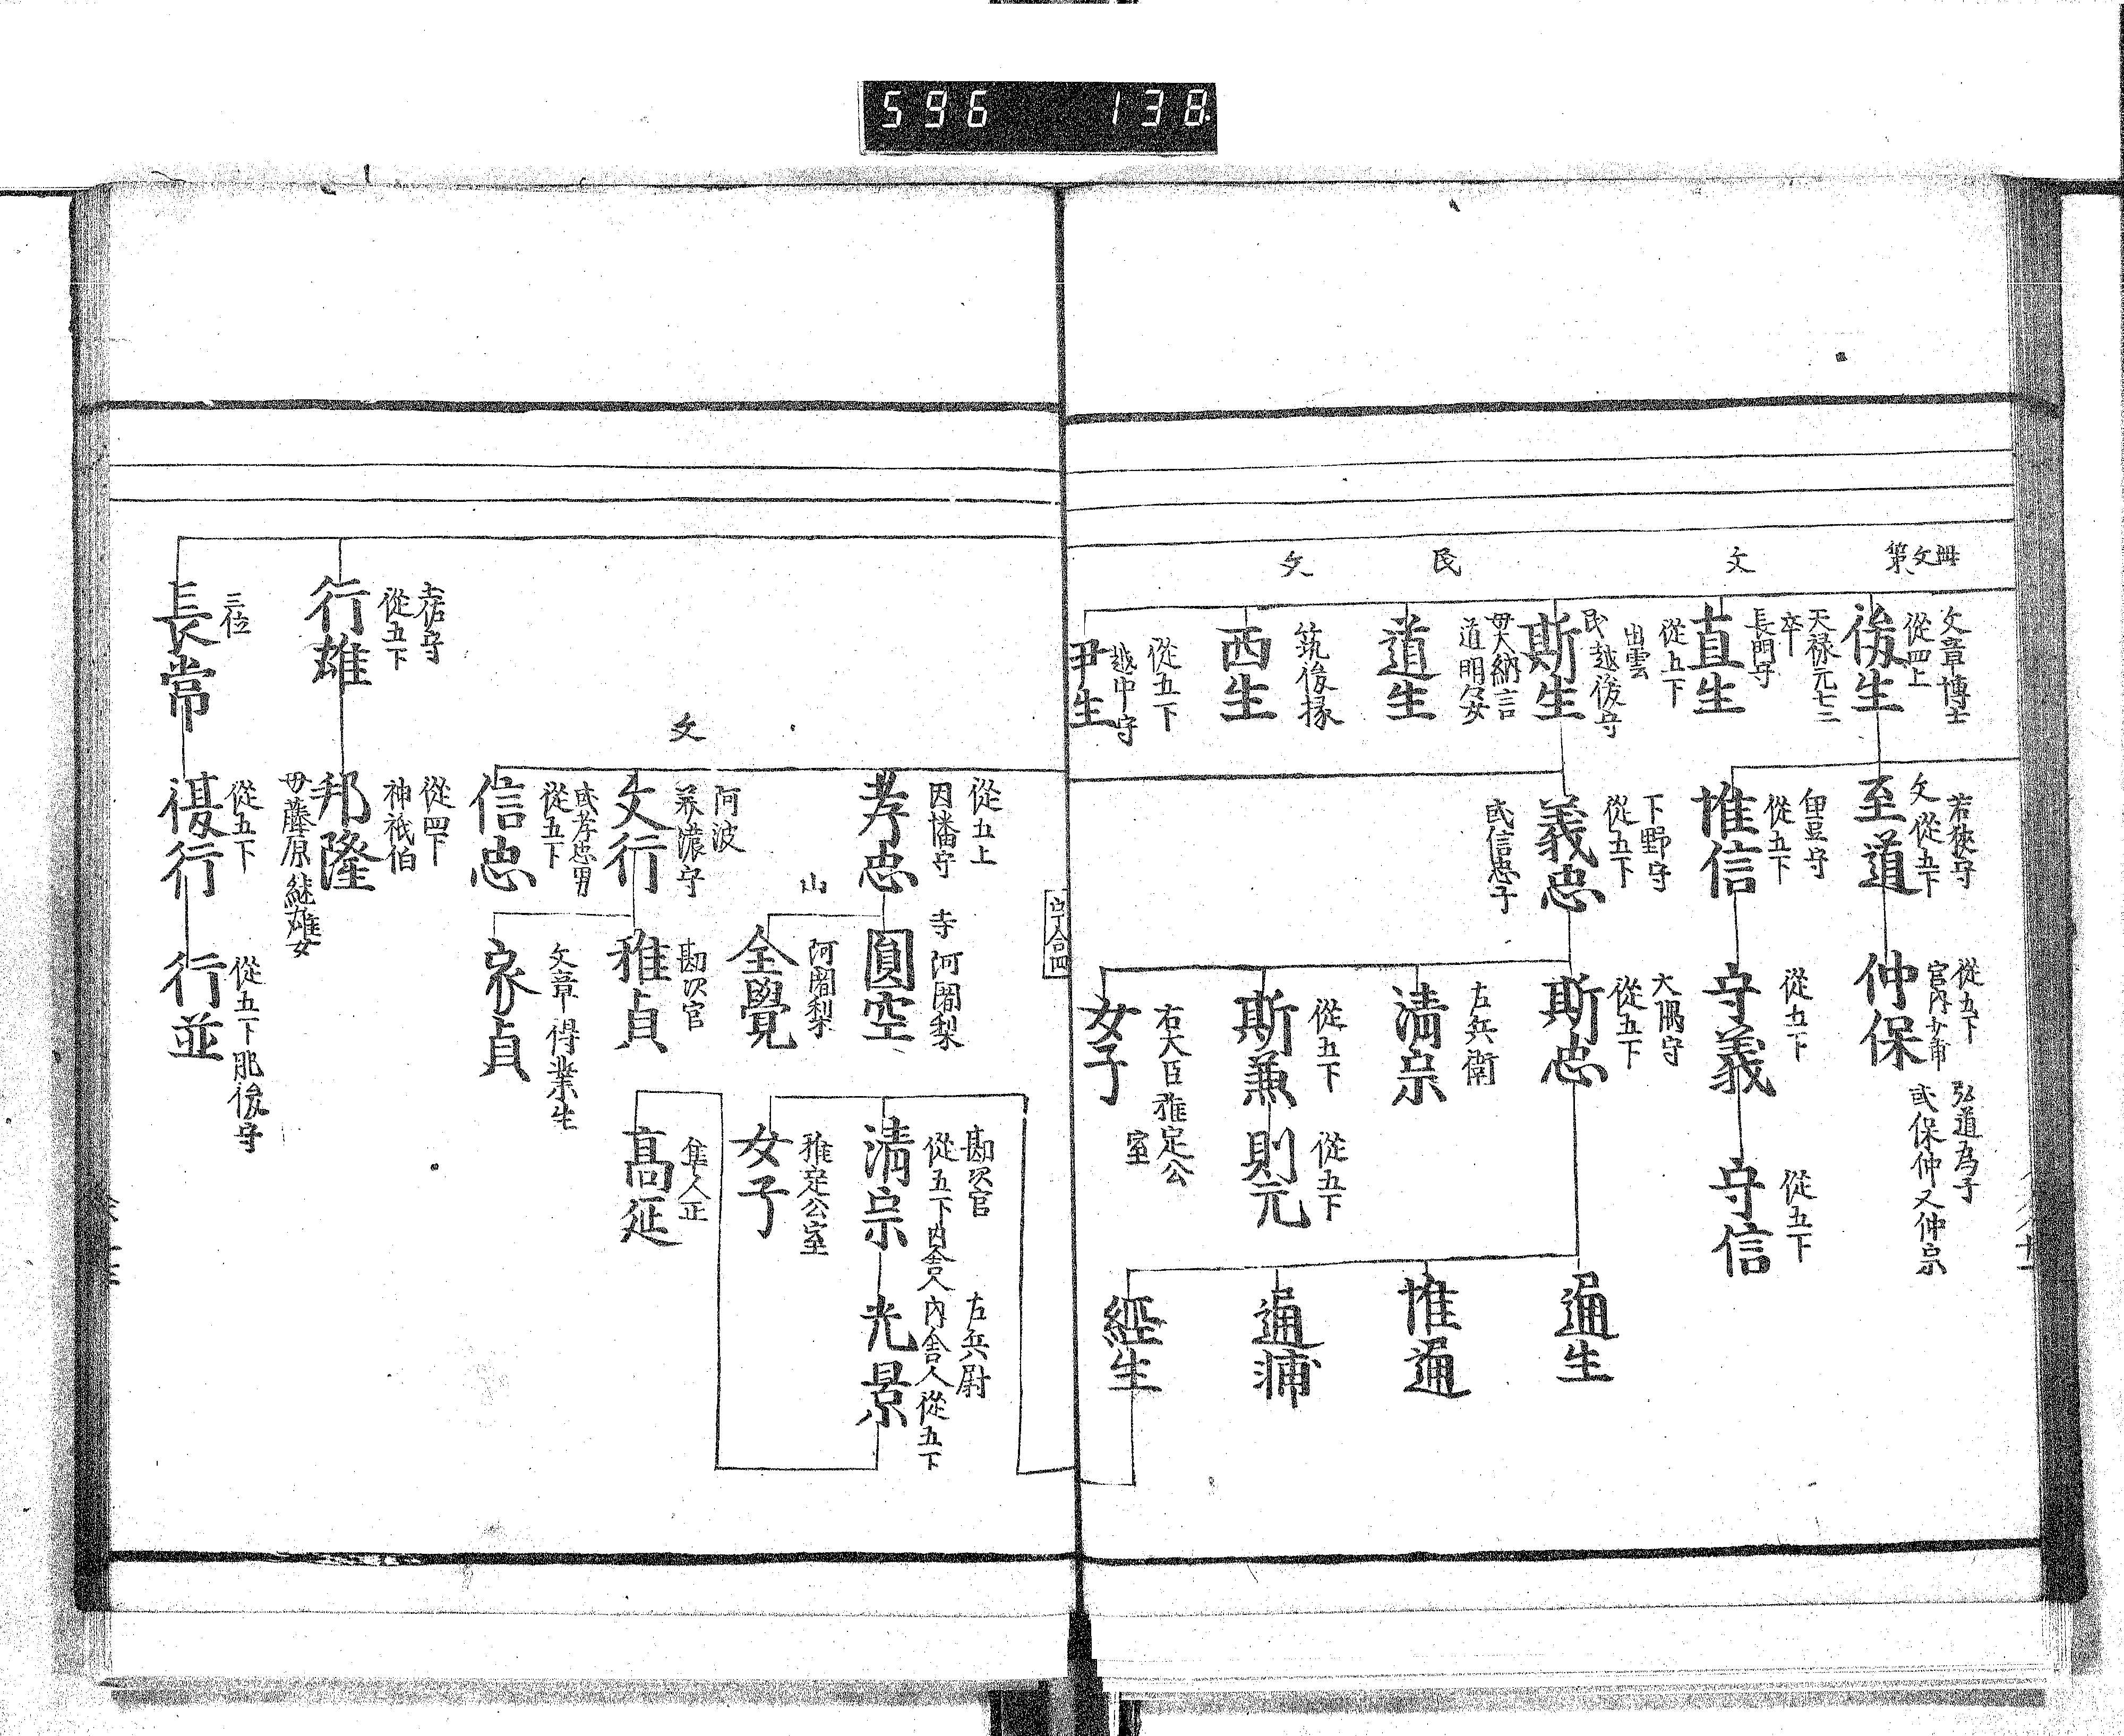 596 138
文章博士
從四上
後生
天禄元七三
卒
長門守
直生
從五下
出雲
民越後守
斯生
母大納言
道明女
道生
筑後掾
西生
從五下
越中守
尹生
第文
文
民
文
若狭守
文從五下
至道
從五下
惟信
下野守
從五下
義忠
或信忠子
從五下
宮内少甫
仲保
弘道為子
或保仲又仲宗
從五下
守義
從五下
守信
大隅守
從五下
斯忠
左兵衛
清宗
從五下
斯兼
從五下
則元
右大臣雅定公
室
女子
通生
惟通
通輔
經生
從五上
因幡守
孝忠
寺阿闍梨
圓空
山
阿闍梨
全覺
文
阿波
美濃守
文行
或孝忠男
從五下
信忠
勘次官
雅貞
文章得業生
家貞
勘次官
從五下内舎人
清宗
左兵尉
内舎人從五下
光景
雅定公室
女子
隼人正
高延
土佐守
從五下
行雄
從四下
神祇伯
邦隆
母藤原継雄女
三位
長常
從五下
行
從五下肥後守
行並